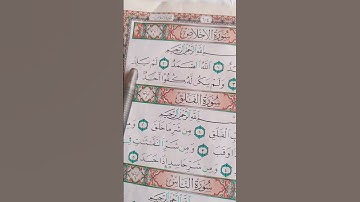 سُورَةُ الإِخْلَاصِ
بِسْمِ اللَّهِ الرَّحْمَٰنِ الرَّحِيمِ
اللَّهُ الصَّمَدُ ٢ لَمْ يَلِدْ
وَلَمْ يَكُن لَّهُ كُفُوًا أَحَدٌ
سُورَةُ الْفَلَقِ
بِسْمِ اللَّهِ الرَّحْمَٰنِ الرَّحِيمِ
الْفَلَقِ ١ مِن شَرِّ مَا خَلَقَ ٢
وَقَبَ ٣ وَمِن شَرِّ النَّفَّاثَاتِ فِي
وَمِن شَرِّ حَاسِدٍ إِذَا حَسَدَ ٥
سُورَةُ النَّاسِ
بِسْمِ اللَّهِ الرَّحْمَٰنِ الرَّحِيمِ